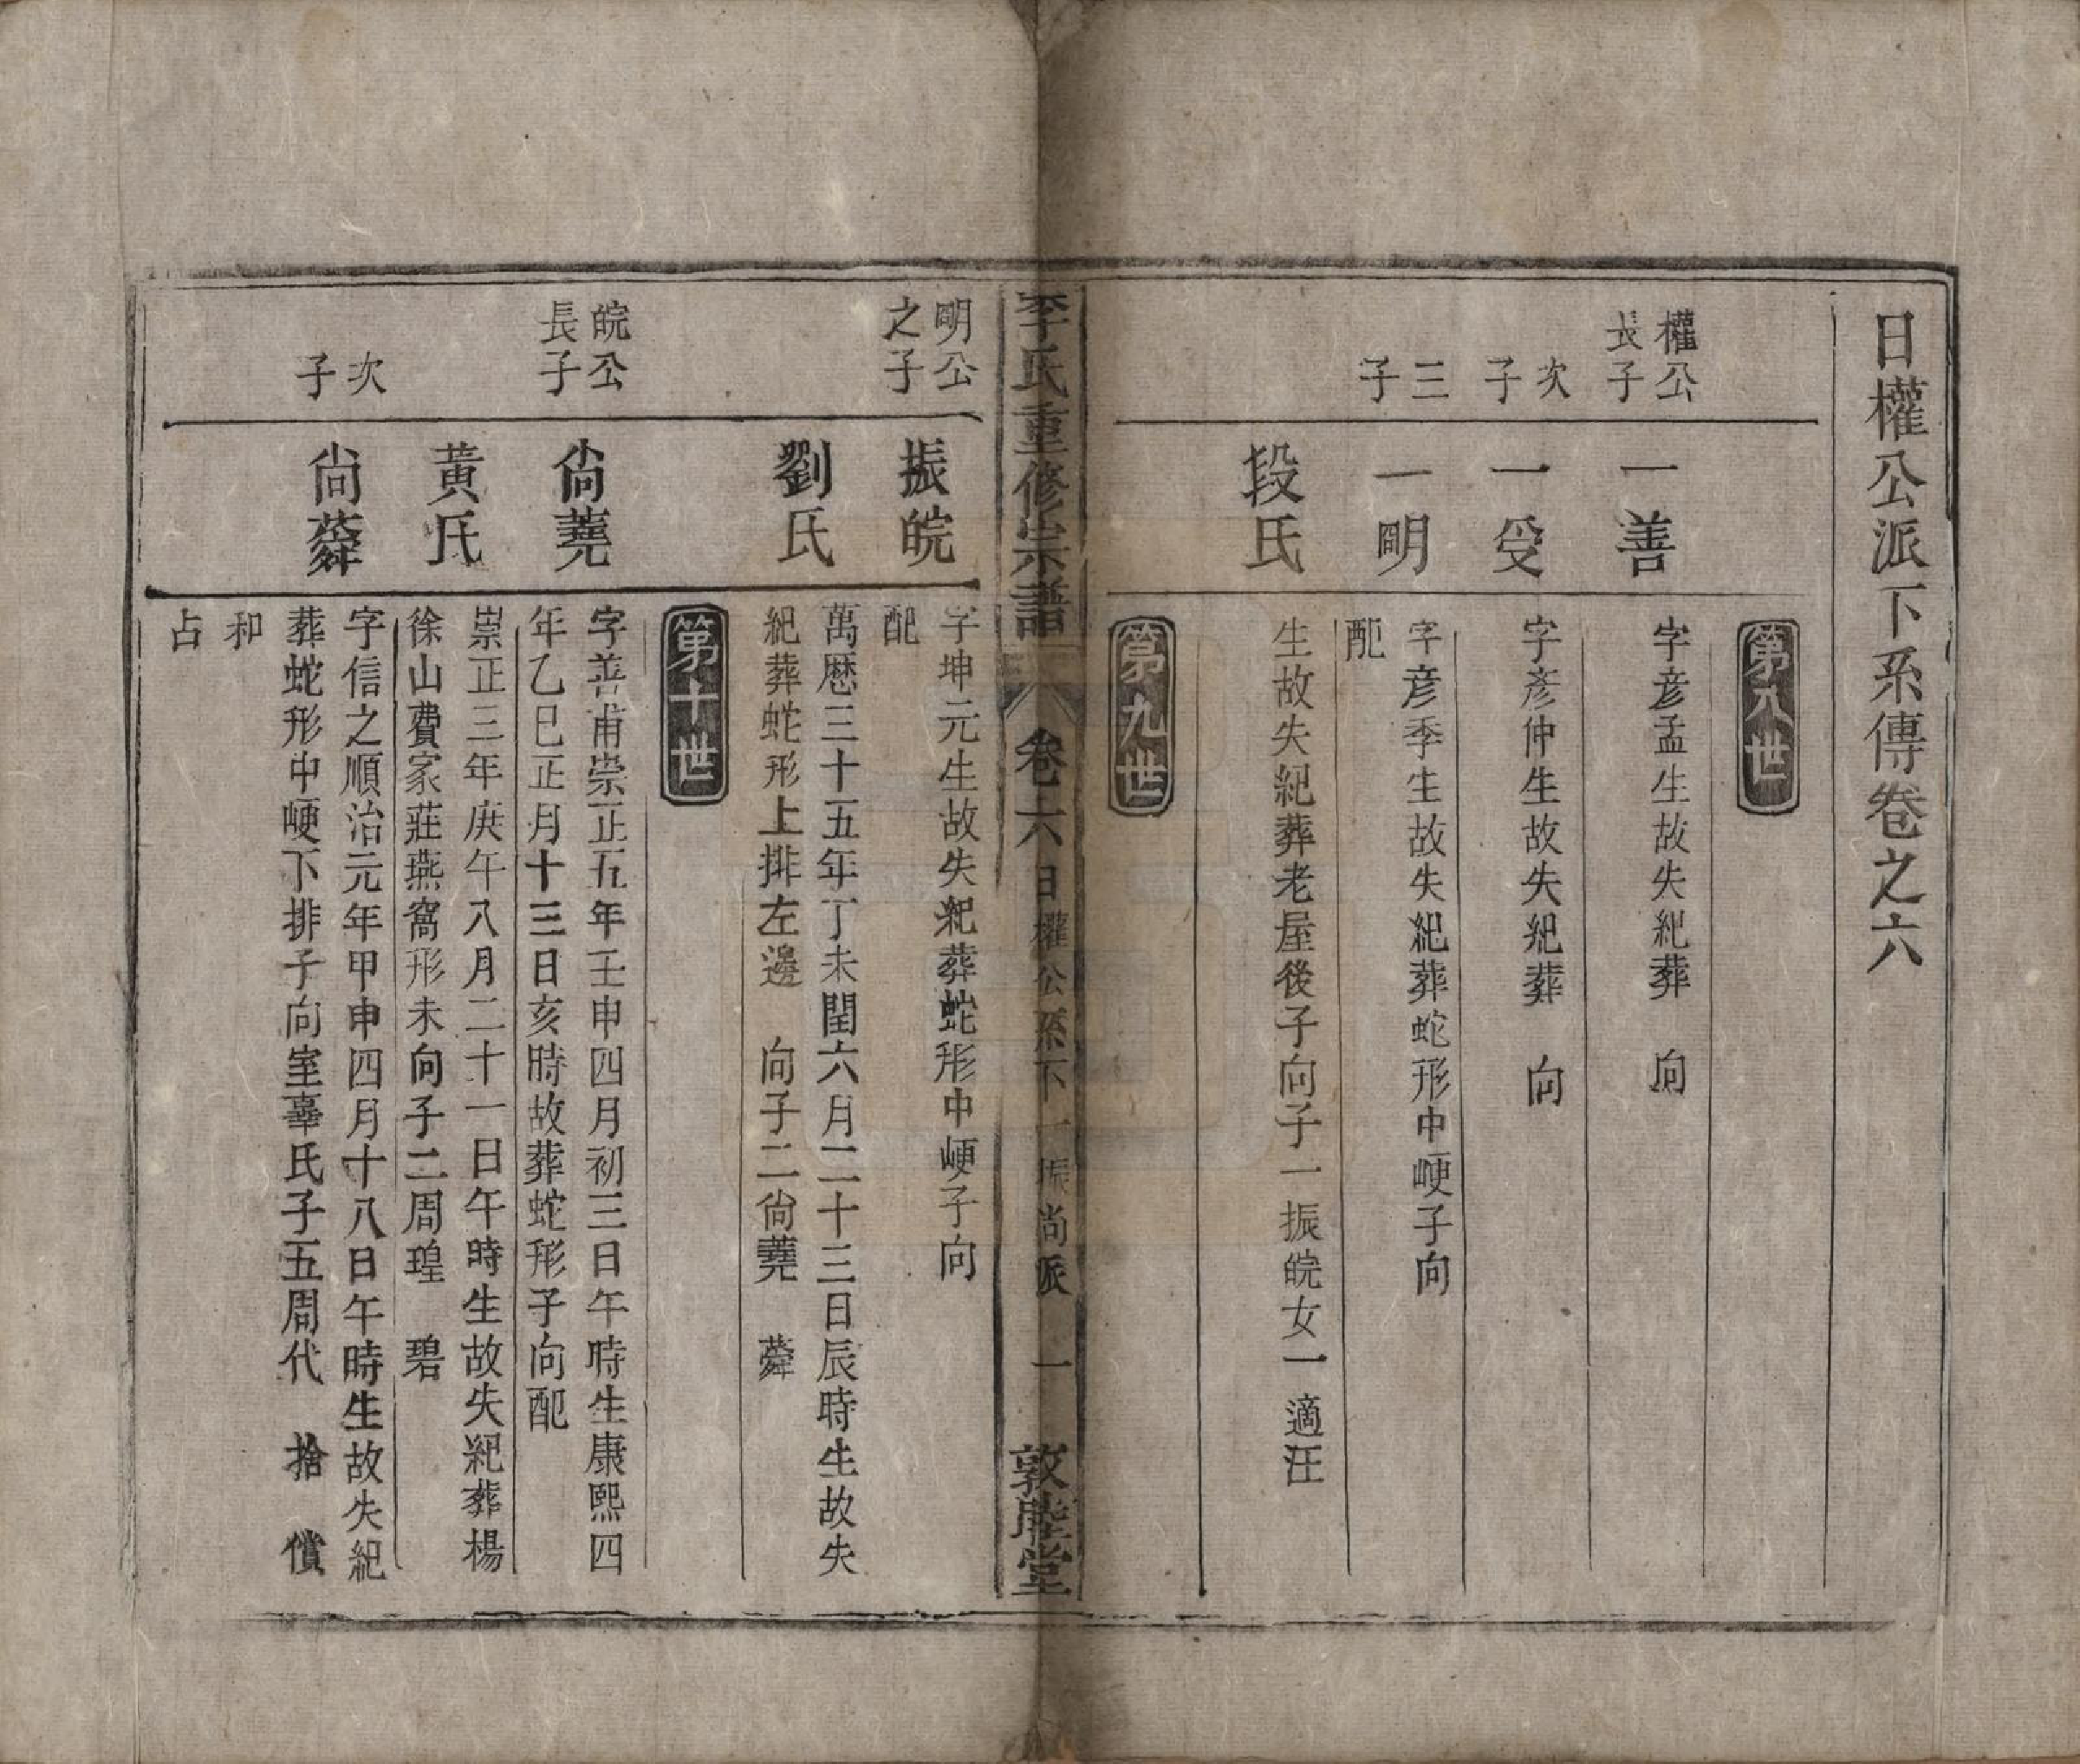 日權公派下系傳卷之六
第八世
權公長子
一善
字彦孟生故失紀葬 向
次子
一受
字彥仲生故失紀葬 向
三子
一明
字彦季生故失紀葬蛇形中㟰子向
配
段氏
生故失紀葬老屋後子向子一振皖女一適汪
第九世
李氏重修宗譜 卷六 日權公系下一振尚派 一 敦睦堂
明公之子
振皖
字坤元生故失紀葬蛇形中㟰子向
配
劉氏
萬厯三十五年丁未閏六月二十三日辰時生故失
紀葬蛇形上排左邊 向子二尙蕘 蕣
第十世
皖公長子
尙蕘
字善甫崇正五年壬申四月初三日午時生康熙四
年乙巳正月十三日亥時故葬蛇形子向配
黃氏
崇正三年庚午八月二十一日午時生故失紀葬楊
徐山費家莊燕窩形未向子二周瑝 碧
次子
尙蕣
字信之順治元年甲申四月十八日午時生故失紀
葬蛇形中㟰下排子向室辜氏子五周代 拾 償
和
占